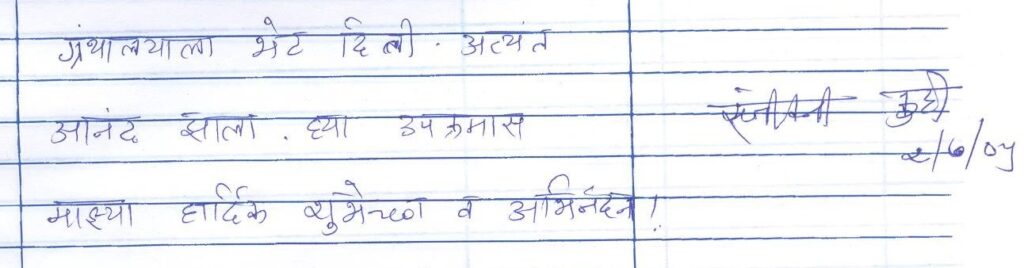 ग्रंथालयाला भेट दिली. अत्यंत
आनंद झाला. ह्या उपक्रमास
माझ्या हार्दिक शुभेच्छा व अभिनंदन!
संजीवनी
२/७/०५